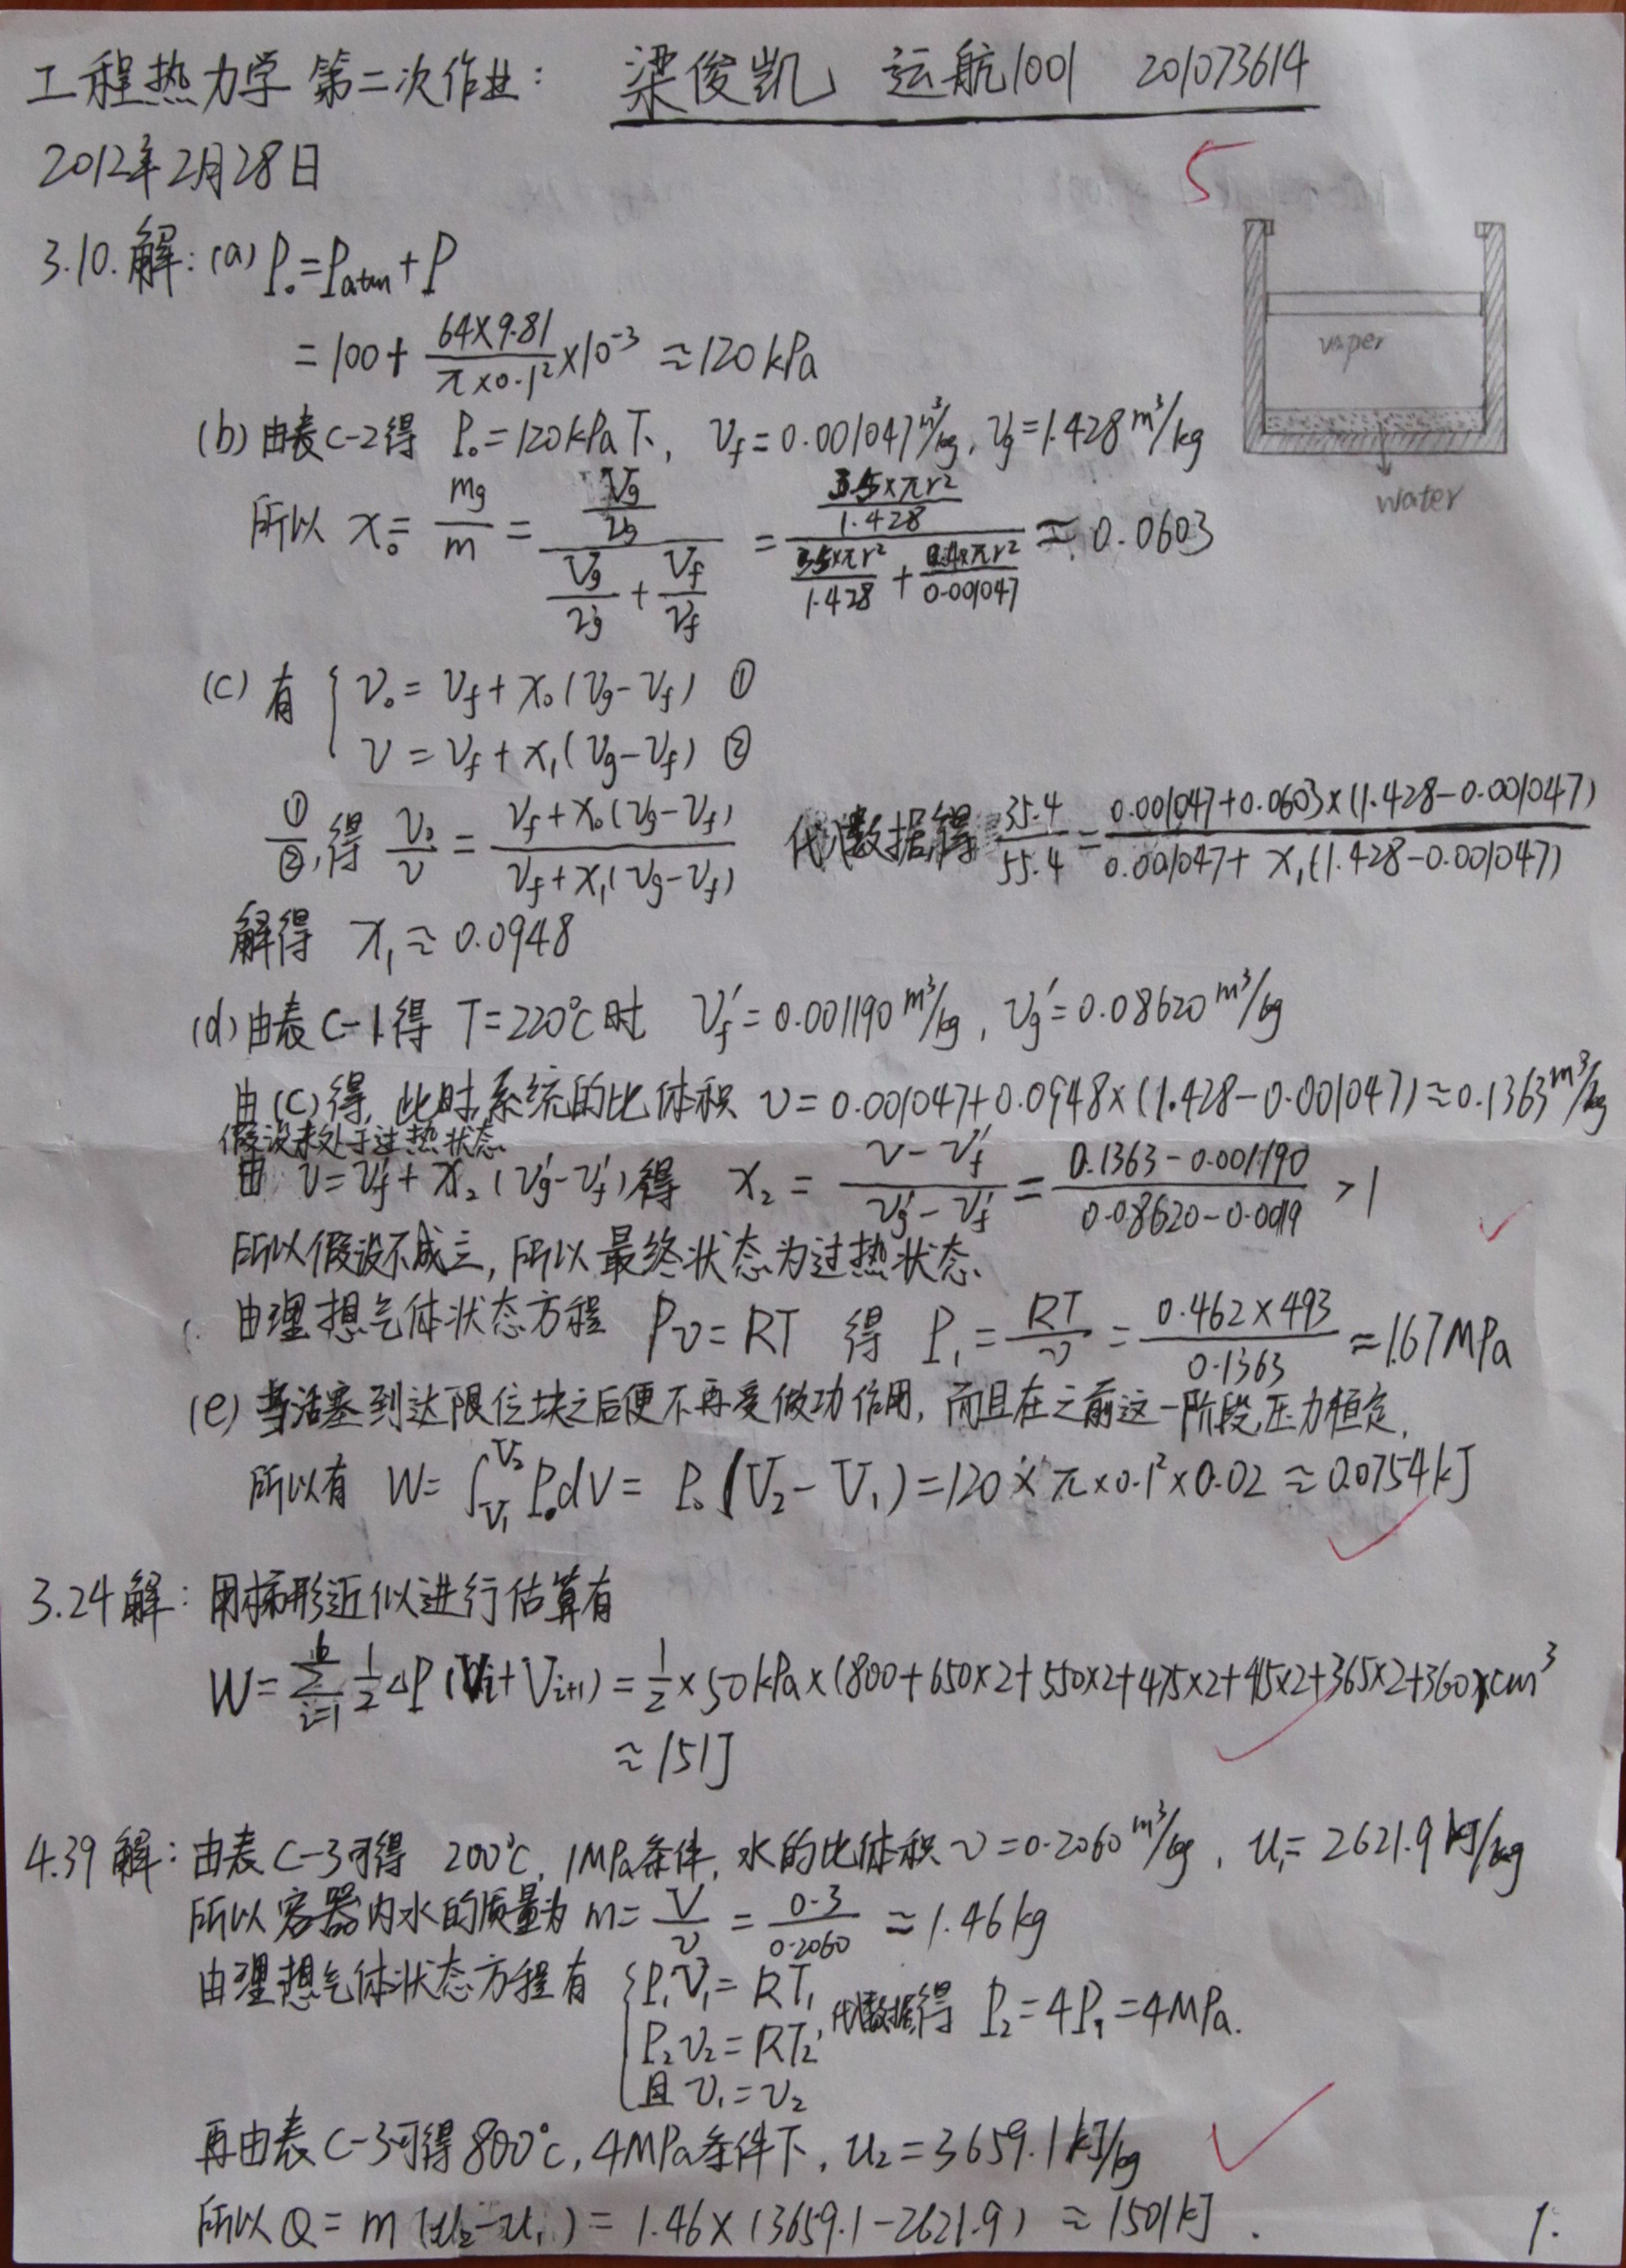 工程热力学 第二次作业: 梁俊凯 运航1001 201073614
2012年2月28日
5
3.10.解:(a) P₀=Patm+P
=100+ (64×9.81)/(π×0.1²) ×10⁻³ ≈120kPa
vaper
water
(b) 由表C-2得 P₀=120kPa下, v_f=0.001047m³/kg, v_g=1.428m³/kg
所以 x₀= m_g/m = (V_g/v_g)/(V_g/v_g + V_f/v_f) = (35×πr²/1.428)/(35×πr²/1.428 + 0.4×πr²/0.001047) ≈ 0.0603
(c) 有 { v₀=v_f+x₀(v_g-v_f) ①
v=v_f+x₁(v_g-v_f) ②
①/②,得 v₀/v = (v_f+x₀(v_g-v_f))/(v_f+x₁(v_g-v_f)) 代入数据得 35.4/55.4 = (0.001047+0.0603×(1.428-0.001047))/(0.001047+ x₁(1.428-0.001047))
解得 x₁≈0.0948
(d) 由表C-1得 T=220℃时 v_f'=0.001190m³/kg, v_g'=0.08620m³/kg
由(c)得, 此时系统的比体积 v=0.001047+0.0948×(1.428-0.001047)≈0.1363m³/kg
假设未处于过热状态
由 v=v_f'+x₂(v_g'-v_f')得 x₂ = (v-v_f')/(v_g'-v_f') = (0.1363-0.001190)/(0.08620-0.0019) >1
所以假设不成立, 所以最终状态为过热状态.
由理想气体状态方程 Pv=RT 得 P₁= RT/v = (0.462×493)/0.1363 ≈1.67MPa
(e) 当活塞到达限位块之后便不再受做功作用, 而且在之前这一阶段压力恒定,
所以有 W=∫_{V₁}^{V₂}P₀dV= P₀(V₂-V₁)=120×π×0.1²×0.02≈0.0754kJ
3.24解: 用梯形近似进行估算有
W=∑_{i=1}^{6} 1/2 ΔP(V_i+V_{i+1})= 1/2 ×50kPa×(800+650×2+550×2+475×2+415×2+365×2+360)×cm³
≈151J
4.39解: 由表C-3可得 200℃, 1MPa条件, 水的比体积v=0.2060m³/kg, u₁=2621.9kJ/kg
所以容器内水的质量为 m= V/v = 0.3/0.2060 ≈1.46kg
由理想气体状态方程有 { P₁v₁=RT₁
P₂v₂=RT₂, 代入数据得 P₂=4P₁=4MPa.
且 v₁=v₂
再由表C-3可得800℃, 4MPa条件下, u₂=3659.1kJ/kg
所以Q=m(u₂-u₁)=1.46×(3659.1-2621.9)≈1501kJ.
1.